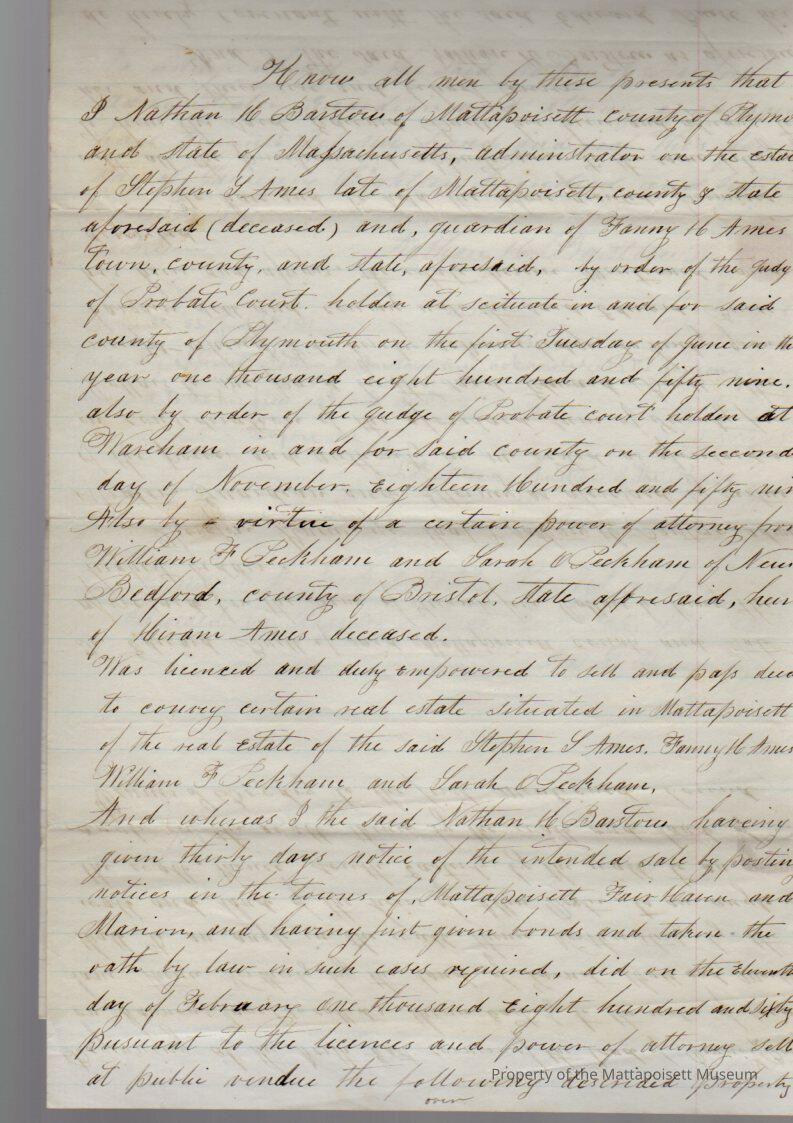 Know all men by these presents that
I Nathan H Barstow of Mattapoisett county of Plymo
and state of Massachusetts, administrator on the Estat
of Stephen S Ames late of Mattapoisett, county & state
aforesaid (deceased) and, guardian of Fanny H Ames
Town, county, and state, aforesaid, by order of the Judg
of Probate Court. holden at scituate in and for said
county of Plymouth on the first Tuesday of June in th
year one thousand eight hundred and fifty nine.
also by order of the Judge of Probate court holden at
Wareham in and for said county on the seccond
day of November. Eighteen Hundred and fifty nin
Also by a virtue of a certain power of attorney from
William F Peckham and Sarah O Peckham of New
Bedford, county of Bristol. state afforesaid, heir
of Hiram Ames deceased.
Was licenced and duly Empowered to sell and pass deed
to convey certain real estate situated in Mattapoisett
of the real Estate of the said Stephen S Ames. Fanny H Ames
William F Peckham and Sarah O Peckham.
And whereas I the said Nathan H Barstow haveing
given thirty days notice of the intended sale by postin
notices in the towns of, Mattapoisett Fair Haven and
Marion, and having first given bonds and taken the
oath by law in such cases required, did on the Eleventh
day of February one thousand Eight hundred and sixty
pursuant to the licences and power of attorney sell
at public vendue the following descrided Property
over
Property of the Mattapoisett Museum